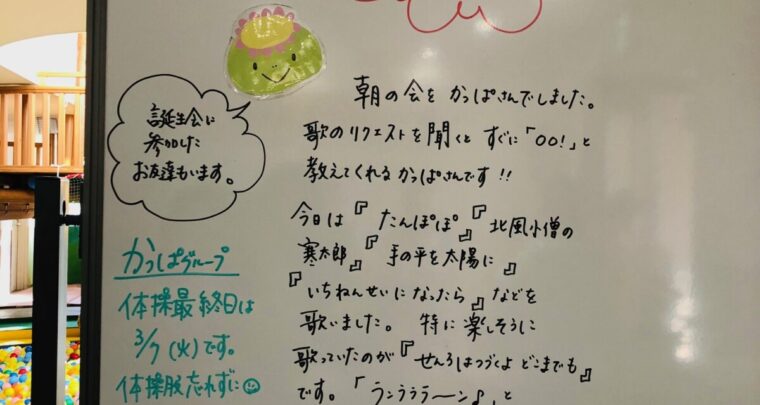 誕生会に
参加した
お友達もいます。
かっぱグループ
体操最終日は
3/7(火)です。
体操服忘れずに
朝の会を かっぱさんでしました。
歌のリクエストを聞くと すぐに「○○!」と
教えてくれるかっぱさんです!!
今日は『たんぽぽ』『北風小僧の
寒太郎』『手の平を太陽に』
『いちねんせいになったら』などを
歌いました。 特に楽しそうに
歌っていたのが『せんろはつづくよ どこまでも』
です。「ランララララ〜ン♪」と